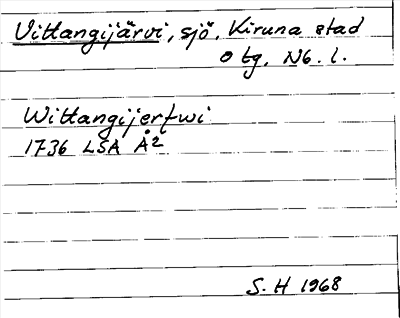 Vittangijärvi, sjö. Kiruna stad
o tg. Nb. l.
Wittangijerfwi
1736 LSA Å2
S.H 1968